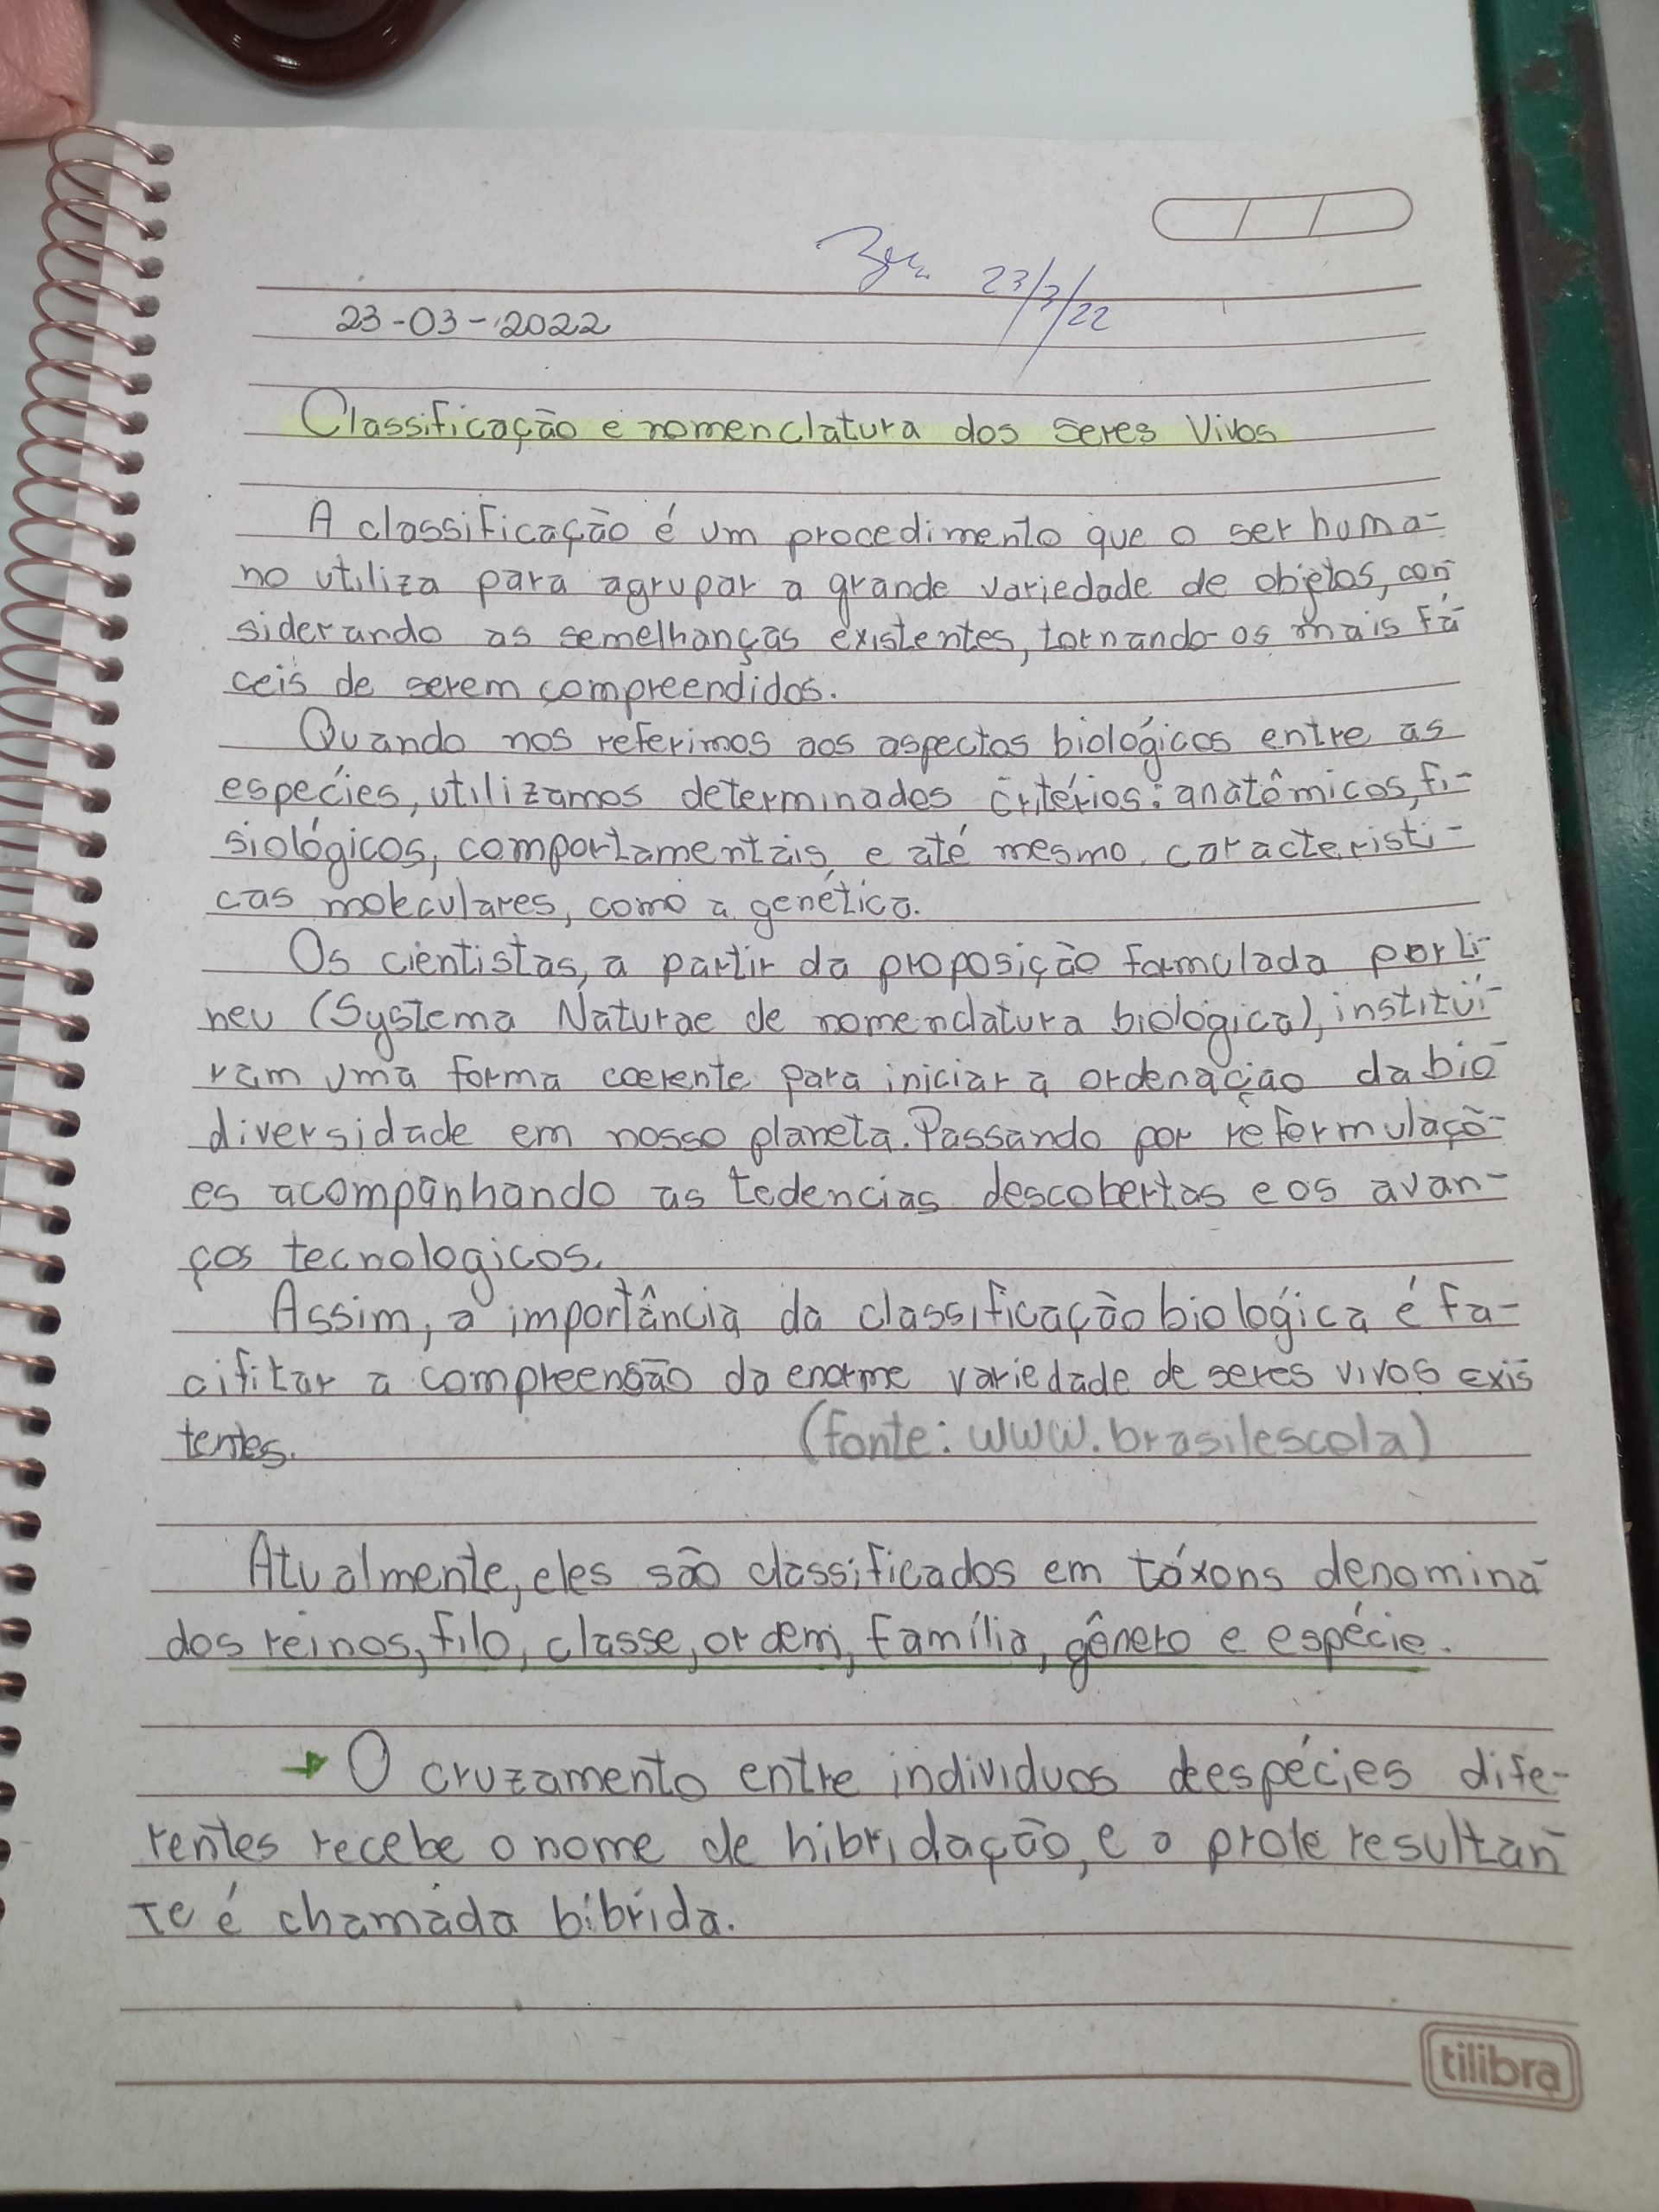 23/3/22
23-03-2022
Classificação e nomenclatura dos seres vivos
A classificação é um procedimento que o ser huma-
no utiliza para agrupar a grande variedade de objetos, con-
siderando as semelhanças existentes, tornando-os mais fá-
ceis de serem compreendidos.
Quando nos referimos aos aspectos biológicos entre as
espécies, utilizamos determinados critérios: anatômicos, fi-
siológicos, comportamentais, e até mesmo, caracteristi-
cas moleculares, como a genética.
Os cientistas, a partir da proposição formulada por Li-
neu (Systema Naturae de nomenclatura biológica), instituí-
ram uma forma coerente para iniciar a ordenação da bio-
diversidade em nosso planeta. Passando por reformulaçõ-
es acompanhando as tedencias descobertas e os avan-
ços tecnologicos.
Assim, a importância da classificação biológica é fa-
cifitar a compreensão da enorme variedade de seres vivos exis-
tentes. (fonte: www.brasilescola)
Atualmente, eles são classificados em táxons denomina-
dos reinos, filo, classe, ordem, família, gênero e espécie.
→ O cruzamento entre individuos de espécies dife-
rentes recebe o nome de hibridação, e a prole resultan-
te é chamada bíbrida.
tilibra